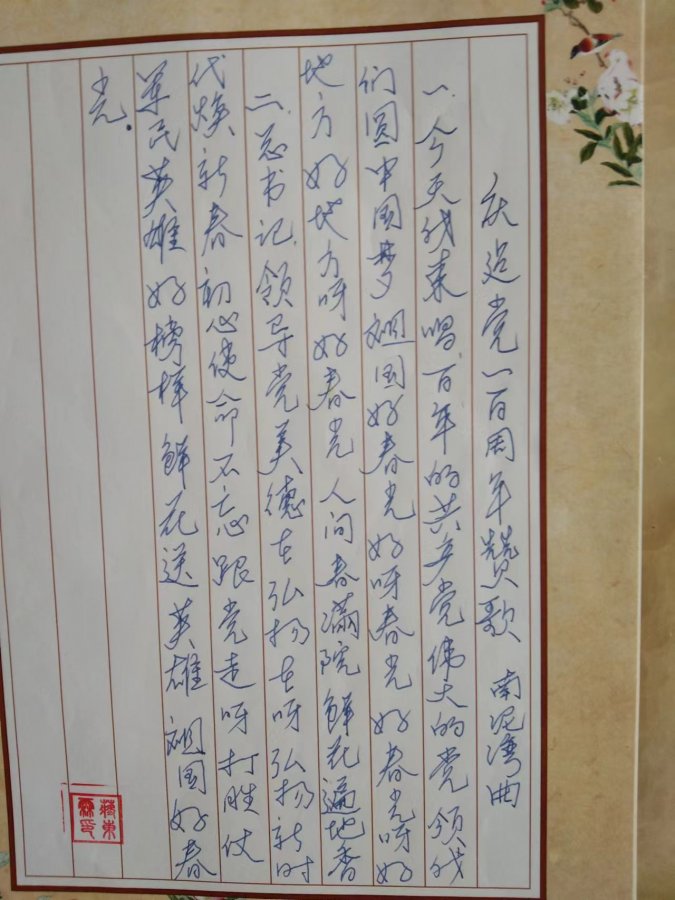 庆选党一百周年赞歌 南泥湾曲
一.今天我来唱,百年的共产党伟大的党领我
们圆中国梦祖国好春光好呀春光好春光呀好
地方好地方呀好春光人间春满院鲜花遍地香
二.总书记.领导党美德在弘扬在呀弘扬新时
代焕新春初心使命不忘跟党走呀打胜仗
军民英雄好榜样鲜花送英雄祖国好春
光.